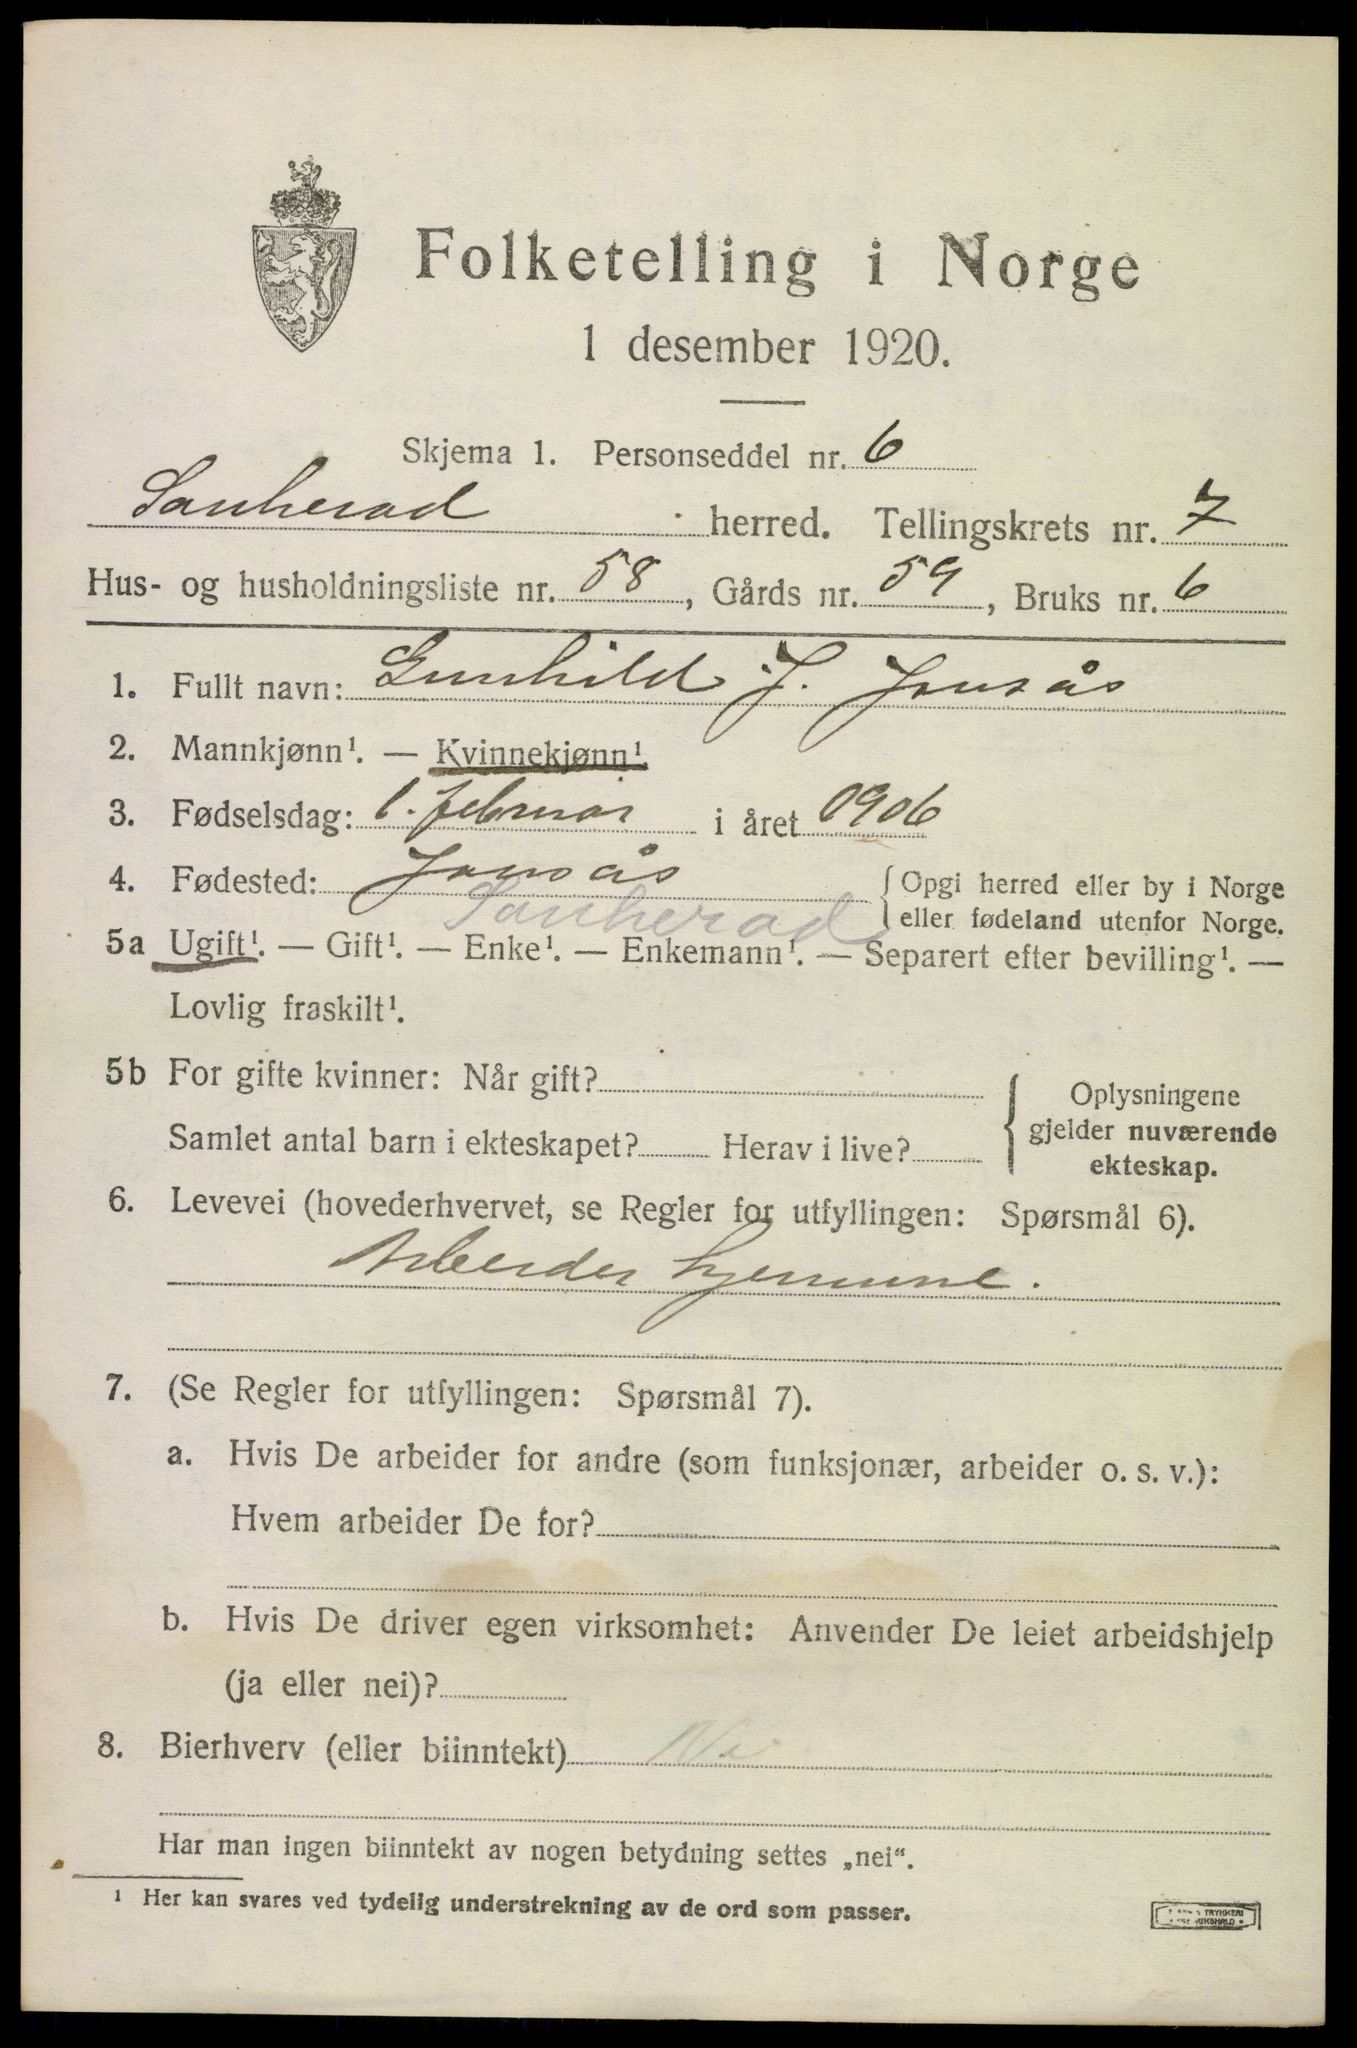 Folketelling i Norge
1 desember 1920.
Skjema 1. Personseddel nr. 6
Sauherad herred. Tellingskrets nr. 7
Hus- og husholdningsliste nr. 58, Gårds nr. 59, Bruks nr. 6
1. Fullt navn: Gunhild J. Jonsås
2. Mannkjønn¹. — Kvinnekjønn¹.
3. Fødselsdag: 1. februar i året 0906
4. Fødested: Jonsås { Opgi herred eller by i Norge
Sauherad eller fødeland utenfor Norge.
5a Ugift¹. — Gift¹. — Enke¹. — Enkemann¹. — Separert efter bevilling¹. —
Lovlig fraskilt¹.
5b For gifte kvinner: Når gift? { Oplysningene
gjelder nuværende
Samlet antal barn i ekteskapet? Herav i live?
ekteskap.
6. Levevei (hovederhvervet, se Regler for utfyllingen: Spørsmål 6).
Arbeider hjemme.
7. (Se Regler for utfyllingen: Spørsmål 7).
a. Hvis De arbeider for andre (som funksjonær, arbeider o. s. v.):
Hvem arbeider De for?
b. Hvis De driver egen virksomhet: Anvender De leiet arbeidshjelp
(ja eller nei)?
8. Bierhverv (eller biinntekt)
Har man ingen biinntekt av nogen betydning settes „nei“.
¹ Her kan svares ved tydelig understrekning av de ord som passer.